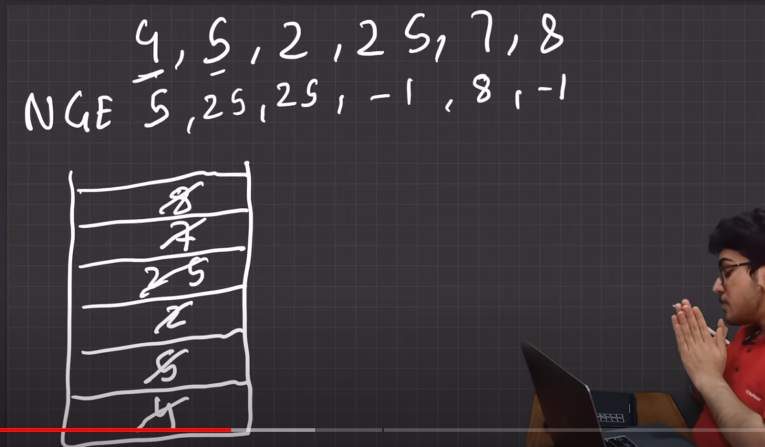 4, 5, 2, 25, 7, 8
NGE 5, 25, 25, -1, 8, -1
8
7
25
2
5
4